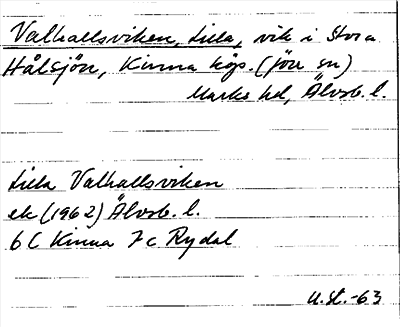 Valhallsviken, Lilla, vik i Stora
Hålsjön, Kinna köp. (förr sn)
Marks hd, Älvsb. l.
Lilla Valhallsviken
ek (1962) Älvsb. l.
6 C Kinna 7 c Rydal
U.St.-63